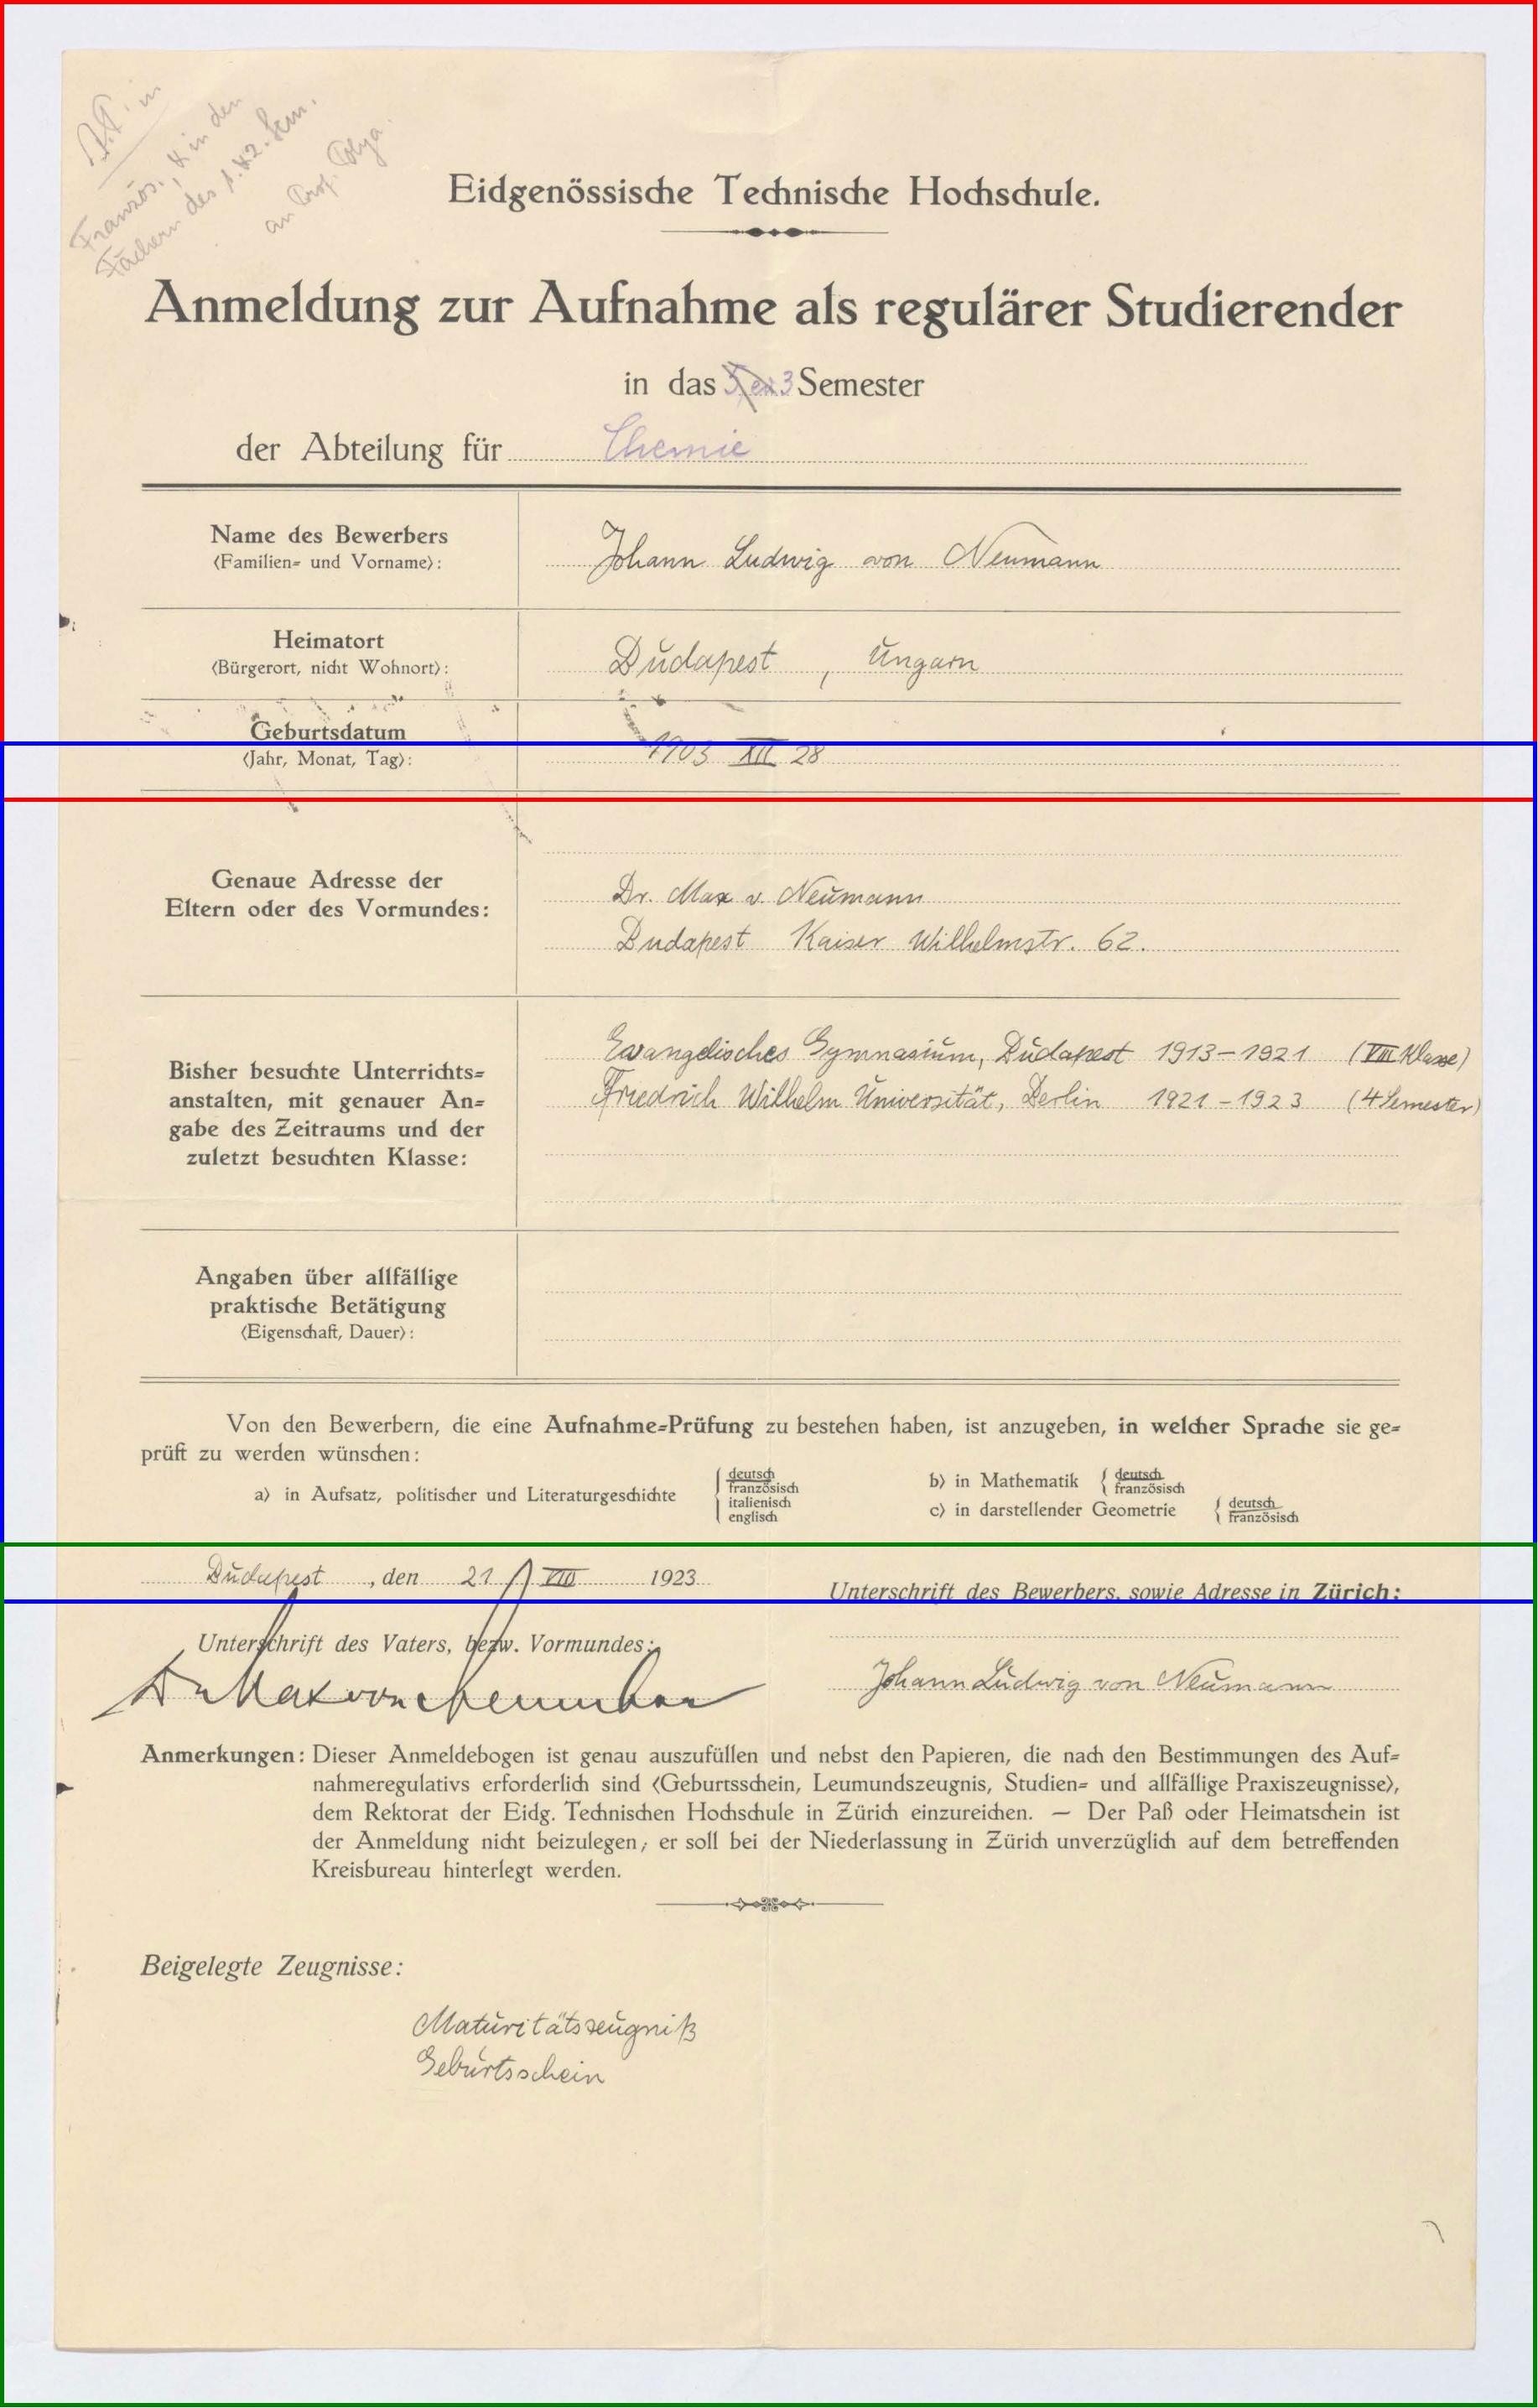 Französ., & in den
Fächern des 1. & 2. Sem.
an Prof. Polya.
Eidgenössische Technische Hochschule.
Anmeldung zur Aufnahme als regulärer Studierender
in das 3 Semester
der Abteilung für Chemie
Name des Bewerbers
(Familien- und Vorname): Johann Ludwig von Neumann
Heimatort
(Bürgerort, nicht Wohnort): Budapest, Ungarn
Geburtsdatum
(Jahr, Monat, Tag): 1903 XII 28
Genaue Adresse der
Eltern oder des Vormundes:
Dr. Max v. Neumann
Budapest Kaiser Wilhelmstr. 62.
Bisher besuchte Unterrichts-
anstalten, mit genauer An-
gabe des Zeitraums und der
zuletzt besuchten Klasse:
Evangelisches Gymnasium, Budapest 1913-1921 (VIII Klasse)
Friedrich Wilhelm Universität, Berlin 1921-1923 (4 Semester)
Angaben über allfällige
praktische Betätigung
(Eigenschaft, Dauer):
Von den Bewerbern, die eine Aufnahme-Prüfung zu bestehen haben, ist anzugeben, in welcher Sprache sie ge-
prüft zu werden wünschen:
a) in Aufsatz, politischer und Literaturgeschichte
deutsch
französisch
italienisch
englisch
b) in Mathematik
deutsch
französisch
c) in darstellender Geometrie
deutsch
französisch
Budapest, den 21 VIII 1923
Unterschrift des Bewerbers, sowie Adresse in Zürich:
Unterschrift des Vaters, bezw. Vormundes:
Dr Max von Neumann
Johann Ludwig von Neumann
Anmerkungen: Dieser Anmeldebogen ist genau auszufüllen und nebst den Papieren, die nach den Bestimmungen des Auf-
nahmeregulativs erforderlich sind (Geburtsschein, Leumundszeugnis, Studien- und allfällige Praxiszeugnisse),
dem Rektorat der Eidg. Technischen Hochschule in Zürich einzureichen. — Der Paß oder Heimatschein ist
der Anmeldung nicht beizulegen; er soll bei der Niederlassung in Zürich unverzüglich auf dem betreffenden
Kreisbureau hinterlegt werden.
Beigelegte Zeugnisse:
Maturitätszeugniß
Geburtsschein